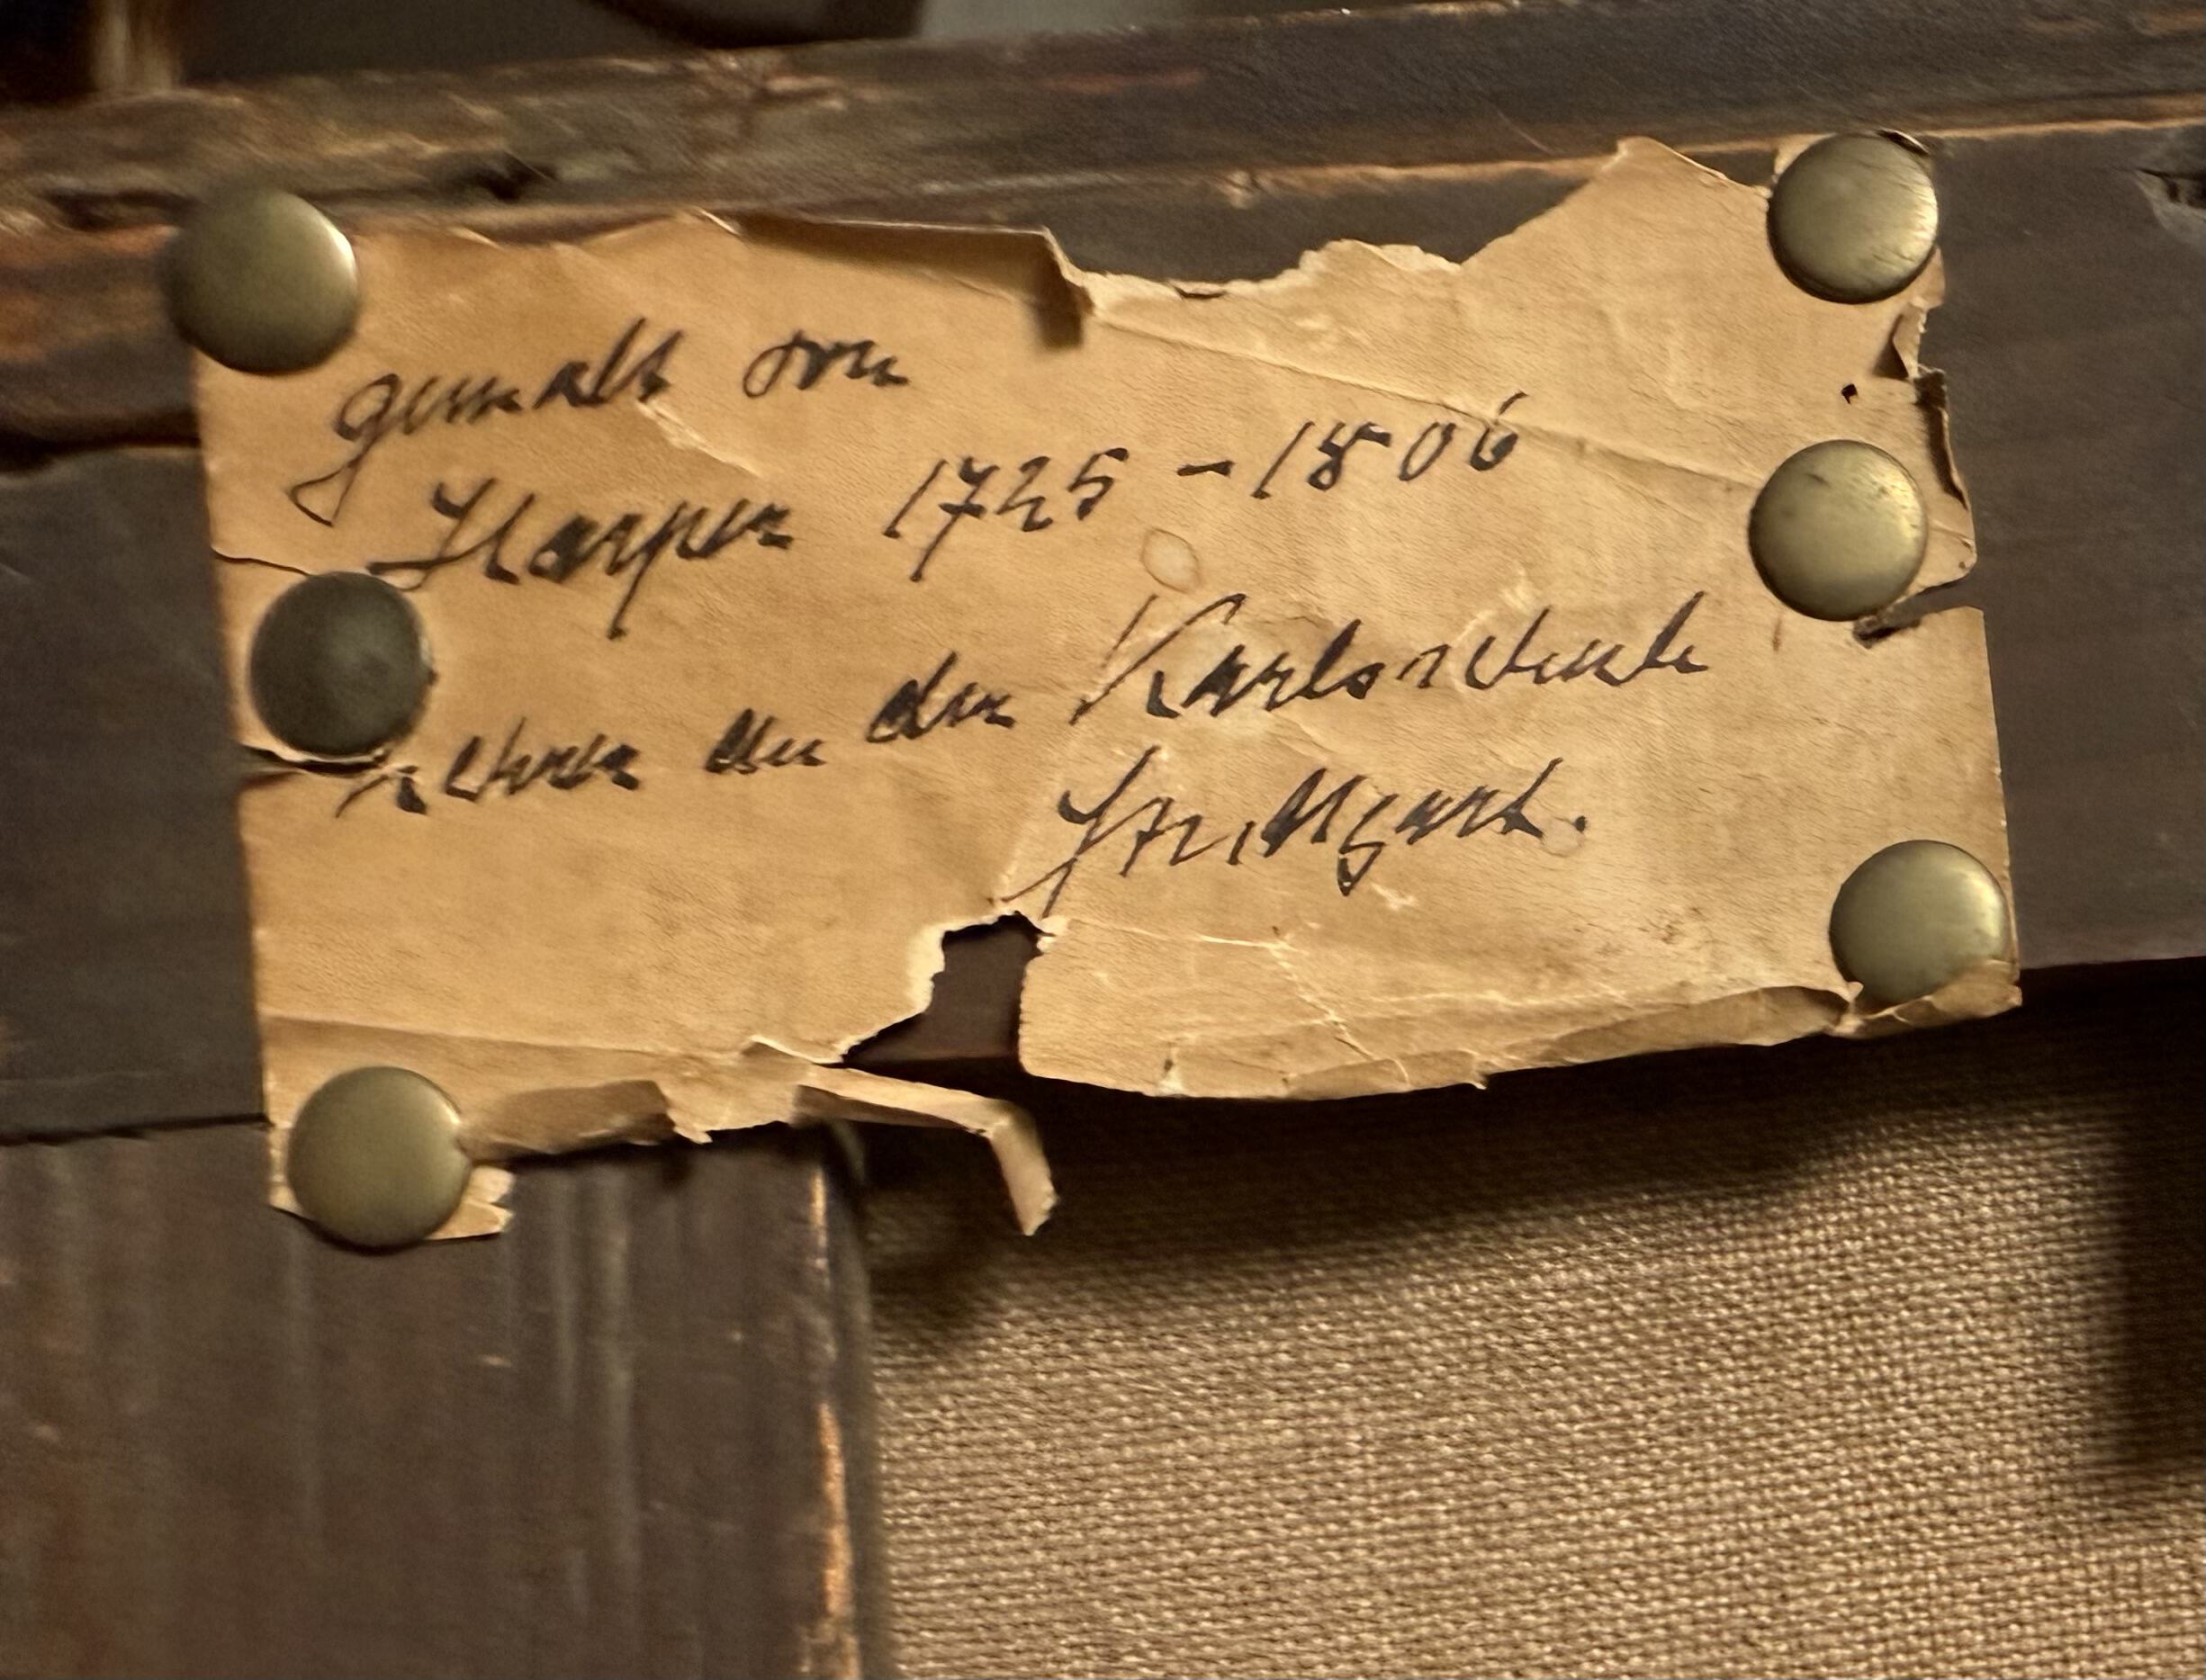 gemalt von
Harper 1725 - 1806
an der Karlsschule
Stuttgart.